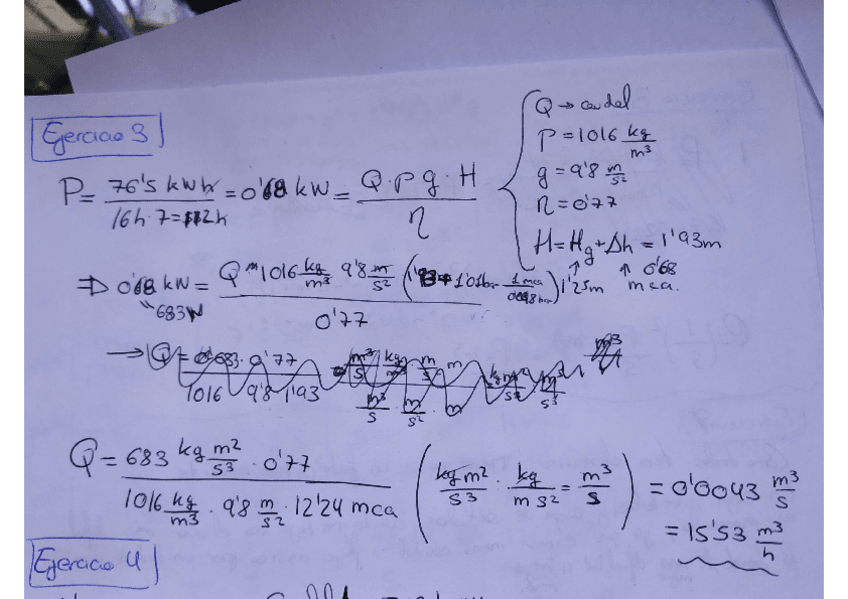 Ejercicio 3
P = 76'5 kWh / 16h·7=112h = 0'68 kW = Q·ρ g·H / η
Q → caudal
ρ = 1016 kg/m³
g = 9'8 m/s²
η = 0'77
H = Hg + Δh = 1'93m
↑ ↑ 0'68
1'25m mca.
⇒ 0'68 kW = Q · 1016 kg/m³ 9'8 m/s² ( + 1'01bar 1 mca / 0'098 bar) / 0'77
" 683W
→ Q = 0'683 · 0'77 / 1016 9'8 1'93
Q = 683 kg m²/s³ · 0'77 / 1016 kg/m³ · 9'8 m/s² · 12'24 mca (kg m²/s³ · kg/m s² = m³/s) = 0'0043 m³/s
= 15'53 m³/h
Ejercicio 4